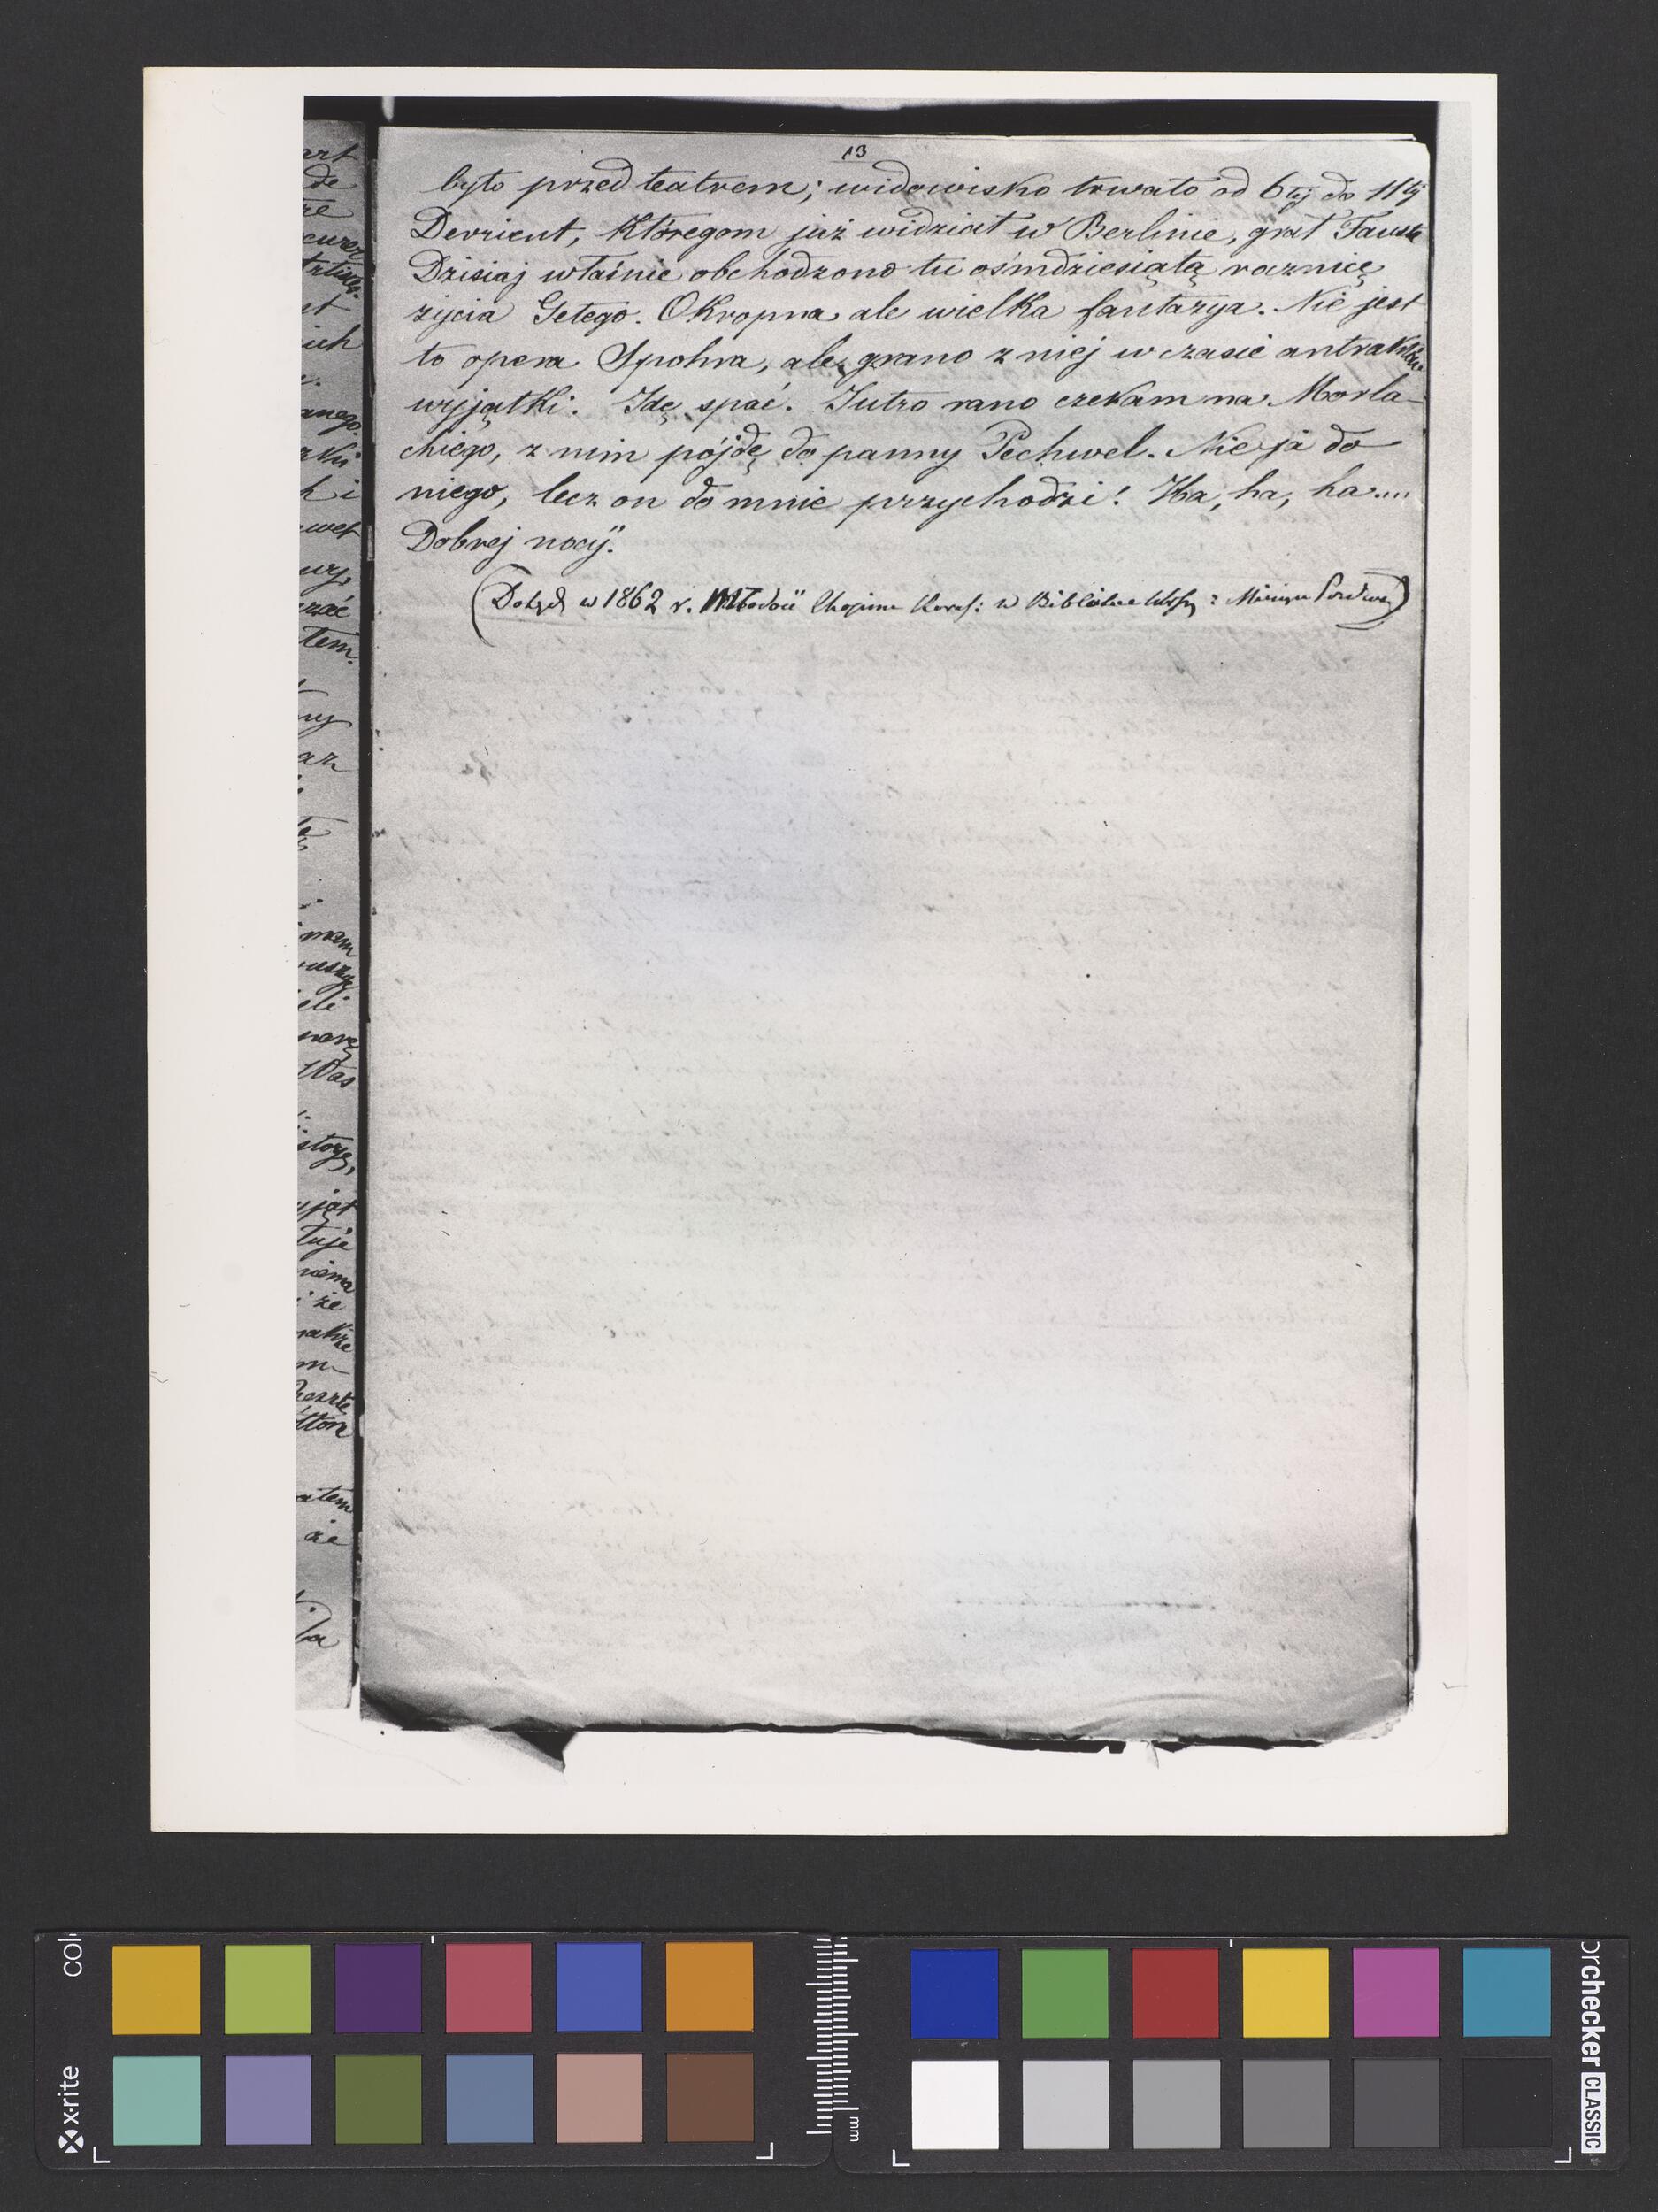 13
było przed teatrem; widowisko trwało od 6tej do 11tej
Devrient, któregom już widział w Berlinie, grał Fausta
Dzisiaj właśnie obchodzono tu ośmdziesiątą rocznicę
życia Getego. Okropna ale wielka fantazya. Nie jest
to opera Spohra, ale grano z niej w czasie antraktów
wyjątki. Idę spać. Jutro rano czekam na Morla-
chiego, z nim pójdę do panny Pechwel. Nie ja do
niego, lecz on do mnie przychodzi! Ha, ha, ha....
Dobrej nocy."
(Dotąd w 1862 r. Młodość Chopina Karas: w Bibliotece Warsz:
art
de
że
ich
ki
h i
wet
tem.
ny
az
eli
Was
jąt
tuje
niema
że
atem
że
col
x·rite
mm
orchecker CLASSIC